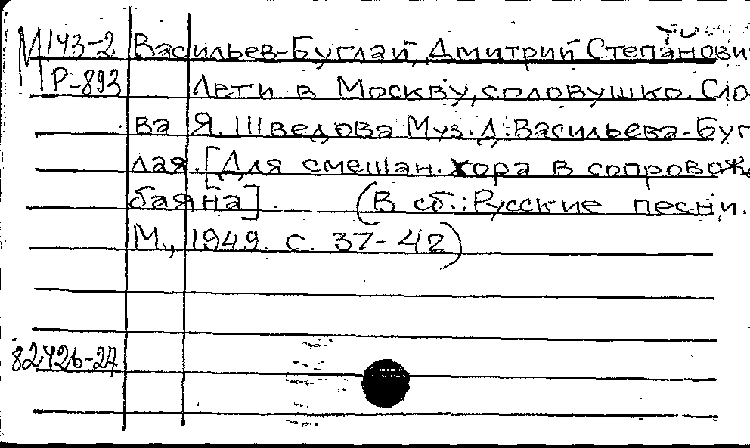 М 143-2 Васильев-Буглай, Дмитрий Степанови
Р-893 Лети в Москву, соловушко. Сло
ва Я. Шведова Муз. Д. Васильева-Буг
лая. [Для смешан. хора в сопровож.
баяна]. (В сб.: Русские песни.
М., 1949. с. 37-42)
82426-27